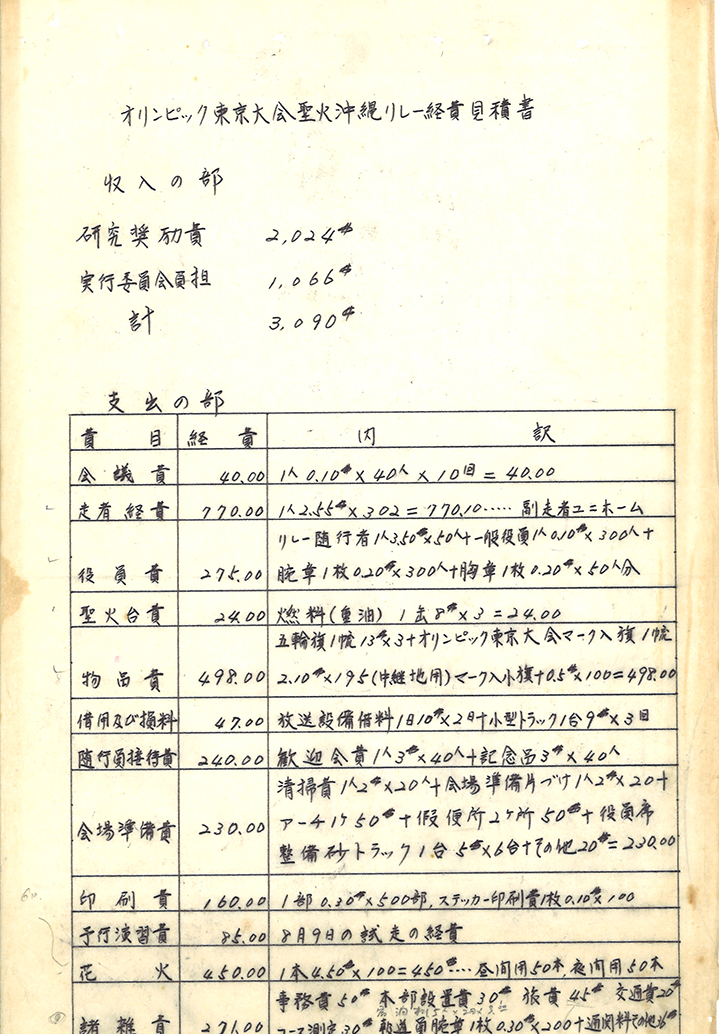 オリンピック東京大会聖火沖縄リレー経費見積書
収入の部
研究奨励費 2,024$
実行委員会負担 1,066$
計 3,090$
支出の部
費目 経費 内訳
会議費 40.00 1人0.10$×40人×10回=40.00
走者経費 770.00 1人2.55$×302=770.10‥‥‥副走者ユニホーム
リレー随行者1人3.50$×50人+一般役員1人0.10$×300人+
役員費 275.00 腕章1枚0.20$×300人+胸章1枚0.20$×50人分
聖火台費 24.00 燃料(重油) 1缶8$×3=24.00
五輪旗1帖13$×3+オリンピック東京大会マーク入旗1帖
物品費 498.00 2.10$×195(中継地用)マーク入小旗+0.5$×100=498.00
借用及び損料 47.00 放送設備借料1日10$×2日+小型トラック1台9$×3回
随行員接待費 240.00 歓迎会費1人3$×40人+記念品3$×40人
清掃費1人2$×20人+会場準備片づけ1人2$×20+
会場準備費 230.00 アーチ1ヶ50$+假便所2ヶ所50$+役員席
整備砂トラック1台5$×6台+その他20$=230.00
印刷費 160.00 1部0.30$×500部,ステッカー印刷費1枚0.10×100
予行演習費 85.00 8月9日の試走の経費
花火 450.00 1本4.50$×100=450$‥‥昼間用50本夜間用50本
事務費50$本部設置費30$旅費45$交通費20$
諸雑費 271.00 コース測定30$報道員腕章1枚0.30×200+通関料その他36$